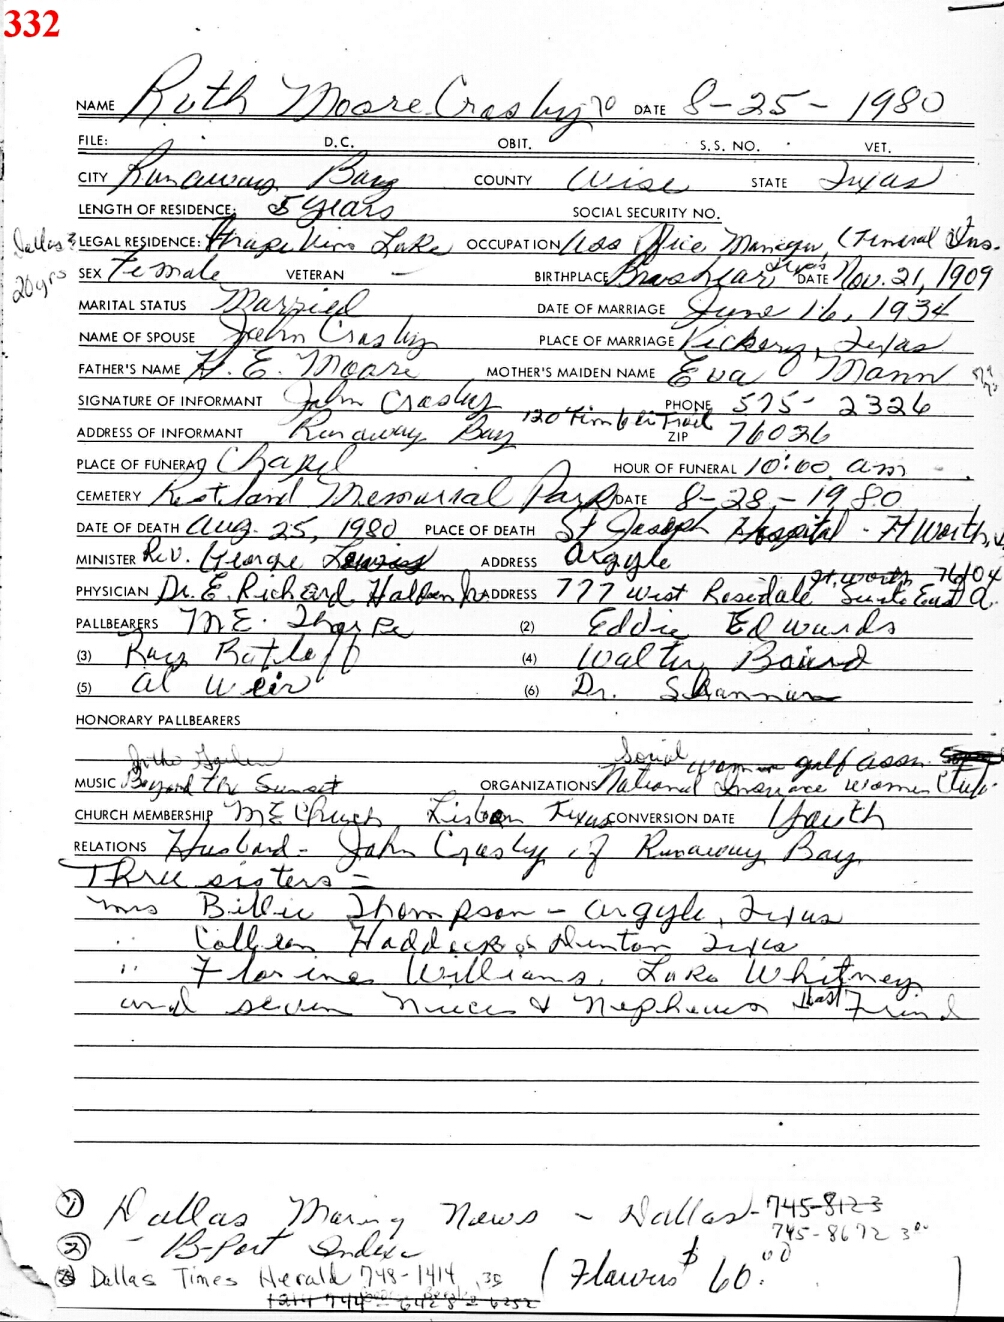 332
NAME Ruth Moore Crosby 70 DATE 8-25-1980
FILE: D.C. OBIT. S.S. NO. VET.
CITY Runaway Bay COUNTY Wise STATE Texas
LENGTH OF RESIDENCE: 5 years SOCIAL SECURITY NO.
Dallas & LEGAL RESIDENCE: Grapevine Lake OCCUPATION Office Manager, General Ins.
20 yrs SEX Female VETERAN - BIRTHPLACE Brashear, Texas DATE Nov. 21, 1909
MARITAL STATUS Married DATE OF MARRIAGE June 16, 1934
NAME OF SPOUSE John Crosby PLACE OF MARRIAGE Vickery, Texas
FATHER'S NAME H. E. Moore MOTHER'S MAIDEN NAME Eva O Mann
SIGNATURE OF INFORMANT John Crosby PHONE 575-2326
ADDRESS OF INFORMANT Runaway Bay 120 Timber Trail ZIP 76026
PLACE OF FUNERAL Chapel HOUR OF FUNERAL 10:00 am
CEMETERY Restland Memorial Park DATE 8-28-1980
DATE OF DEATH Aug. 25, 1980 PLACE OF DEATH St Joseph Hospital - Ft Worth,
MINISTER Rev. George ADDRESS Argyle
Ft. Worth 76104
PHYSICIAN Dr. E. Richard ADDRESS 777 West Rosedale Suite
PALLBEARERS M.E. Tharpe (2) Eddie Edwards
(3) Ray Ratleff (4) Walter Baird
(5) Al Weir (6) Dr. Shannon
HONORARY PALLBEARERS
In the Garden Social women golf assn.
MUSIC Beyond the Sunset ORGANIZATIONS National Insurance Women Club
CHURCH MEMBERSHIP M E Church Lisbon Texas CONVERSION DATE Youth
RELATIONS Husband - John Crosby of Runaway Bay
Three sisters =
Mrs Billie Thompson - Argyle, Texas
" Colleen Haddock of Denton Texas
" Florine Williams, Lake Whitney
and seven Nieces & Nephews Friend
① Dallas Morning News - Dallas - 745-8123
745-8672 3⁰⁰
② - B-Port Index
③ Dallas Times Herald 748-1414 .35 (Flowers $60.⁰⁰ )